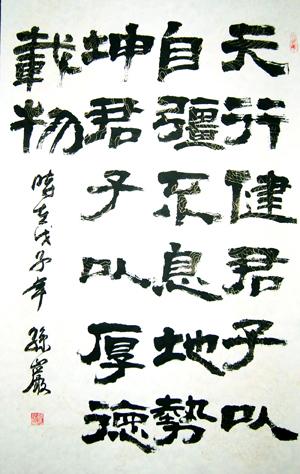 天行健君子以
自彊不息地勢
坤君子以厚德
載物
時在戊子年 孫